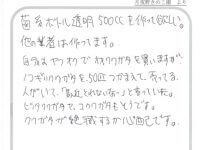 月夜野きのこ園 より
菌糸ボトル透明500ccを作って欲しい。
他の業者は作ってます。
自分はヤフオクでオオクワガタを買いますが
ノコギリクワガタを50匹つかまえて売ってる
人がいて、「最近とれないなぁ」と言っていた。
ヒラタクワガタや、コクワガタもそうです。
クワガタが絶滅するか心配です。